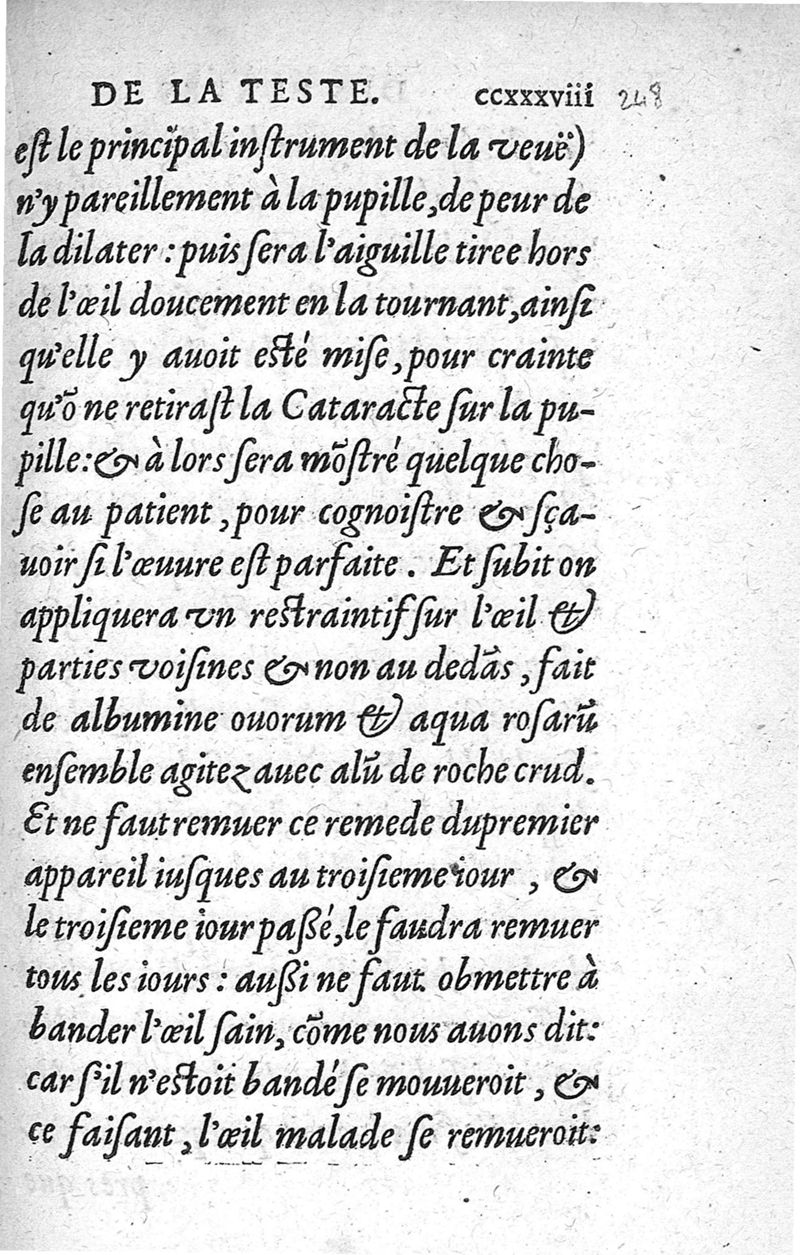 DE LA TESTE. ccxxxviii 248
eſt le principal inſtrument de la veuë)
n'y pareillement à la pupille, de peur de
la dilater : puis ſera l'aiguille tiree hors
de l'œil doucement en la tournant, ainſi
qu'elle y auoit eſté miſe, pour crainte
qu'õ ne retiraſt la Cataracte ſur la pu-
pille: & à lors ſera mõſtré quelque cho-
ſe au patient, pour cognoiſtre & ſça-
uoir ſi l'œuure eſt parfaite. Et ſubit on
appliquera vn reſtraintif ſur l'œil &
parties voiſines & non au dedãs, fait
de albumine ouorum & aqua roſarũ
enſemble agitez auec alũ de roche crud.
Et ne faut remuer ce remede du premier
appareil iuſques au troiſieme iour , &
le troiſieme iour paßé, le faudra remuer
tous les iours : außi ne faut obmettre à
bander l'œil ſain, cõme nous auons dit:
car ſ'il n'eſtoit bandé ſe mouueroit , &
ce faiſant, l'œil malade ſe remueroit: